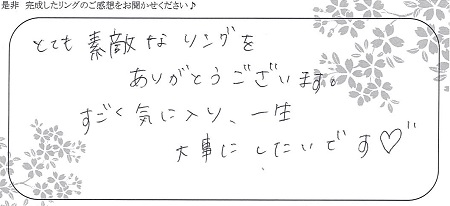 是非 完成したリングのご感想をお聞かせください♪
とても素敵なリングを
ありがとうございます。
すごく気に入り、一生
大事にしたいです♡"